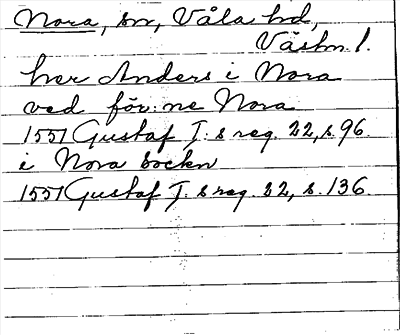 Nora, sn, Våla hd,
Västm. l.
her Anders i Nora
ved för:ne Nora
1551 Gustaf I:s reg. 22, s. 96.
i Nora sockn
1551 Gustaf I:s reg. 22, s. 136.